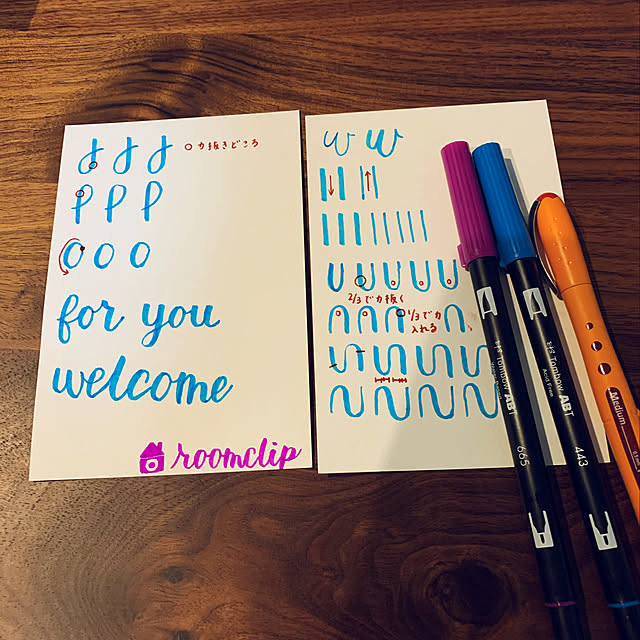 f f f ○力抜きどころ
p p p
o o o
for you
welcome
roomclip
w w
2/3で力抜く
1/3で力
入れる
Tombow ABT
Acid Free
665
Tombow ABT
Acid Free
443
Medium